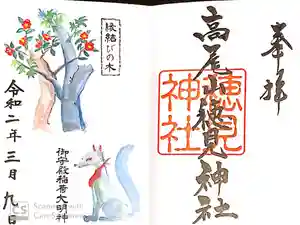 奉拝
高尾山穂見神社
穂見神社
縁結びの木
御守殿稲荷大明神
令和二年三月九日
Scanned with
CamScanner